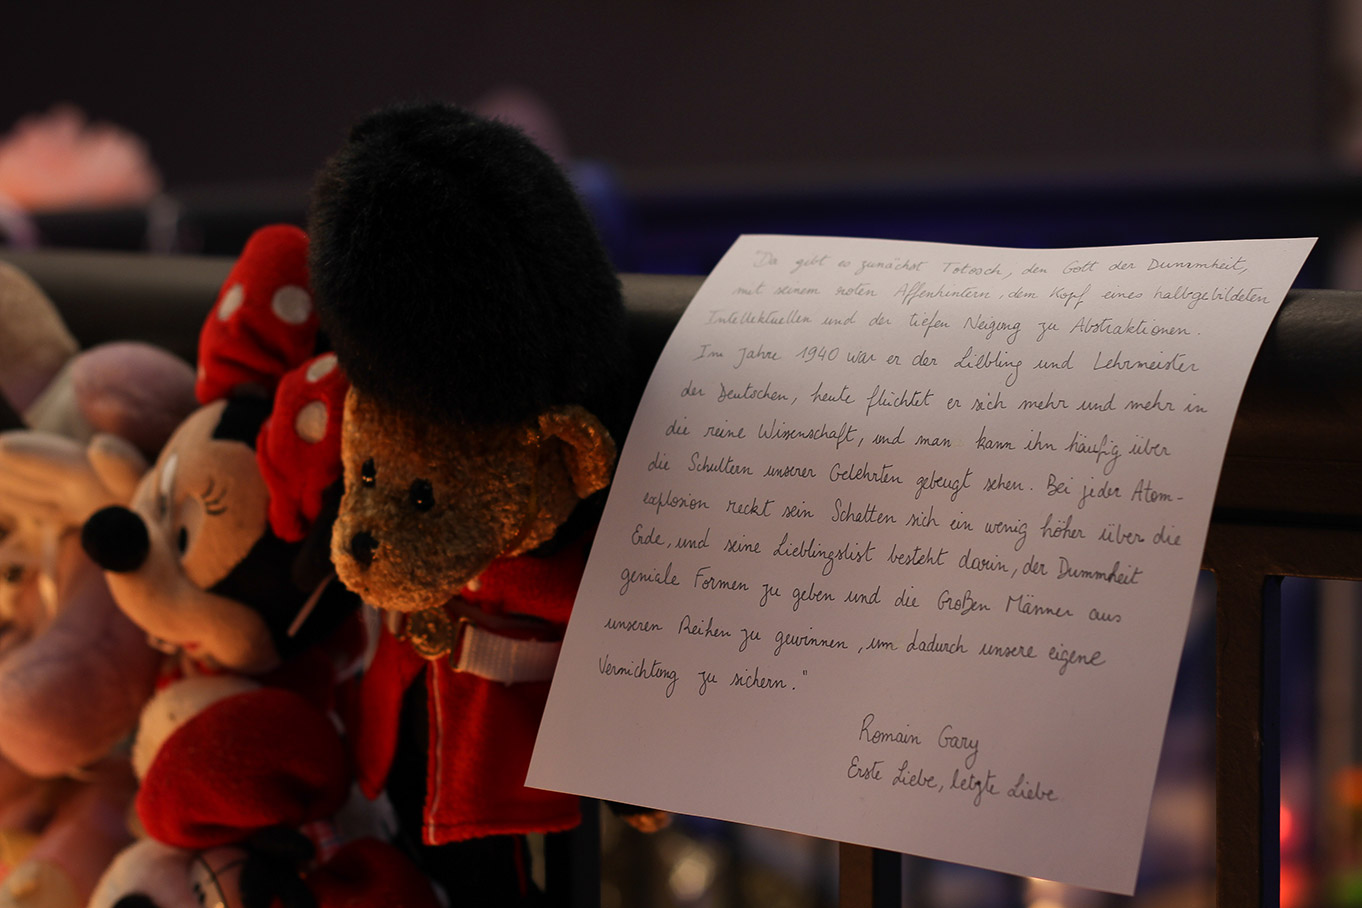 "Da gibt es zunächst Totosch, den Gott der Dummheit,
mit seinem roten Affenhintern, dem Kopf eines halbgebildeten
Intellektuellen und der tiefen Neigung zu Abstraktionen.
Im Jahre 1940 war er der Liebling und Lehrmeister
der Deutschen, heute flüchtet er sich mehr und mehr in
die reine Wissenschaft, und man kann ihn häufig über
die Schultern unserer Gelehrten gebeugt sehen. Bei jeder Atom-
explosion reckt sein Schatten sich ein wenig höher über die
Erde, und seine Lieblingslist besteht darin, der Dummheit
geniale Formen zu geben und die Großen Männer aus
unseren Reihen zu gewinnen, um dadurch unsere eigene
Vernichtung zu sichern."
Romain Gary
Erste Liebe, letzte Liebe